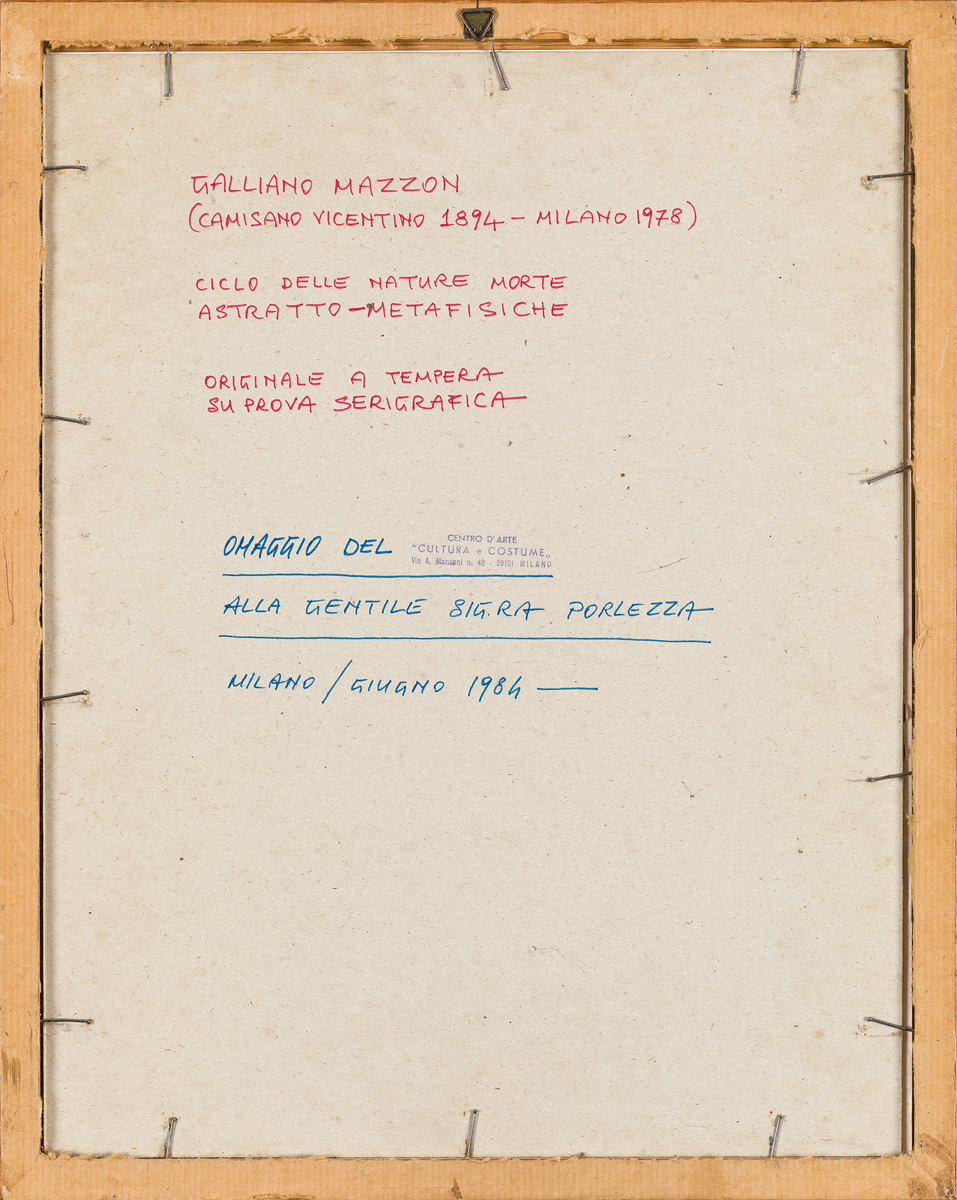 GALLIANO MAZZON
(CAMISANO VICENTINO 1894 – MILANO 1978)
CICLO DELLE NATURE MORTE
ASTRATTO – METAFISICHE
ORIGINALE A TEMPERA
SU PROVA SERIGRAFICA
OMAGGIO DEL CENTRO D'ARTE
"CULTURA e COSTUME„
Via A. Manzoni n. 42 - 20121 MILANO
ALLA GENTILE SIG.RA PORLEZZA
MILANO / GIUGNO 1984 —